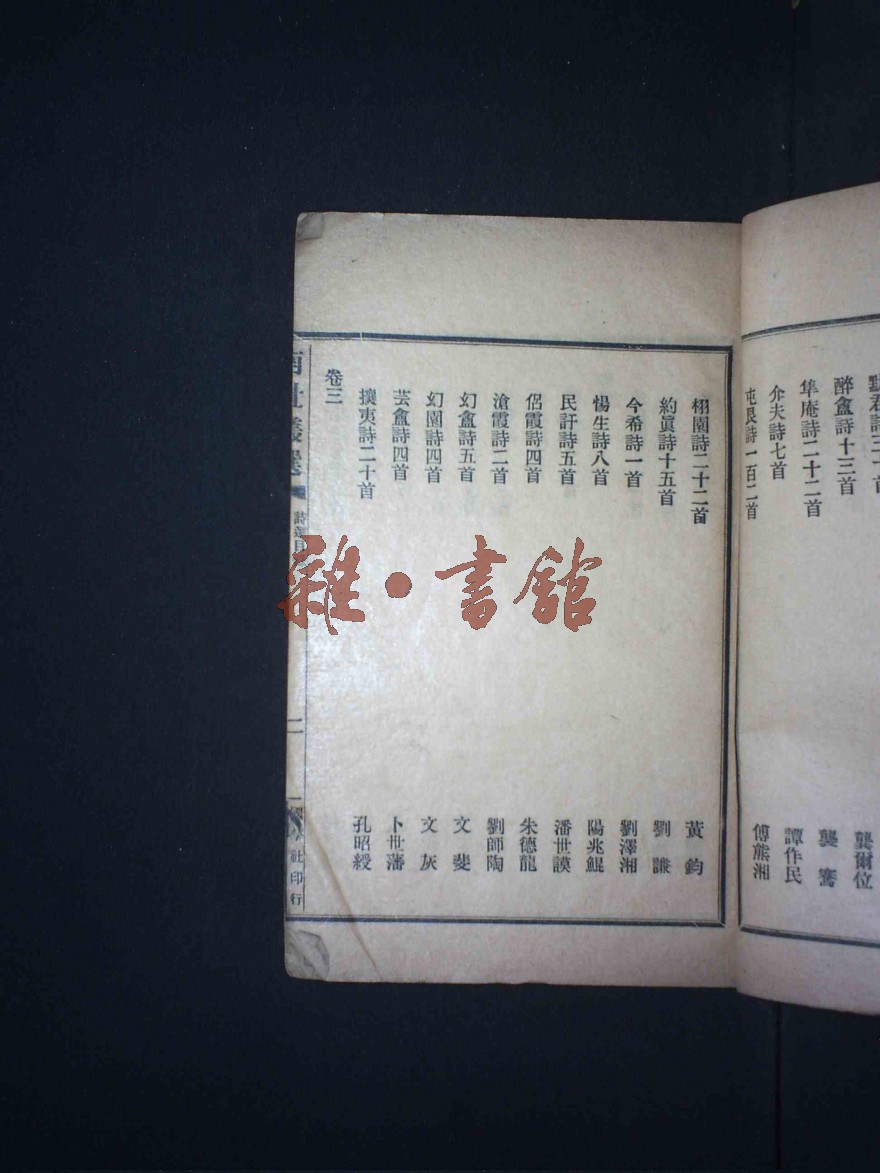 醉盦詩十三首 龔爾位
隼庵詩二十二首 龔騫
介夫詩七首 譚作民
屯艮詩一百二首 傅熊湘
栩園詩二十二首 黃鈞
約眞詩十五首 劉謙
今希詩一首 劉澤湘
惕生詩八首 陽兆鯤
民訏詩五首 潘世謨
侶霞詩四首 朱德龍
滄霞詩二首 劉師陶
幻盦詩五首 文斐
幻園詩四首 文灰
芸盦詩四首 卜世藩
攘夷詩二十首 孔昭綬
卷三
二
社印行
雜·書館